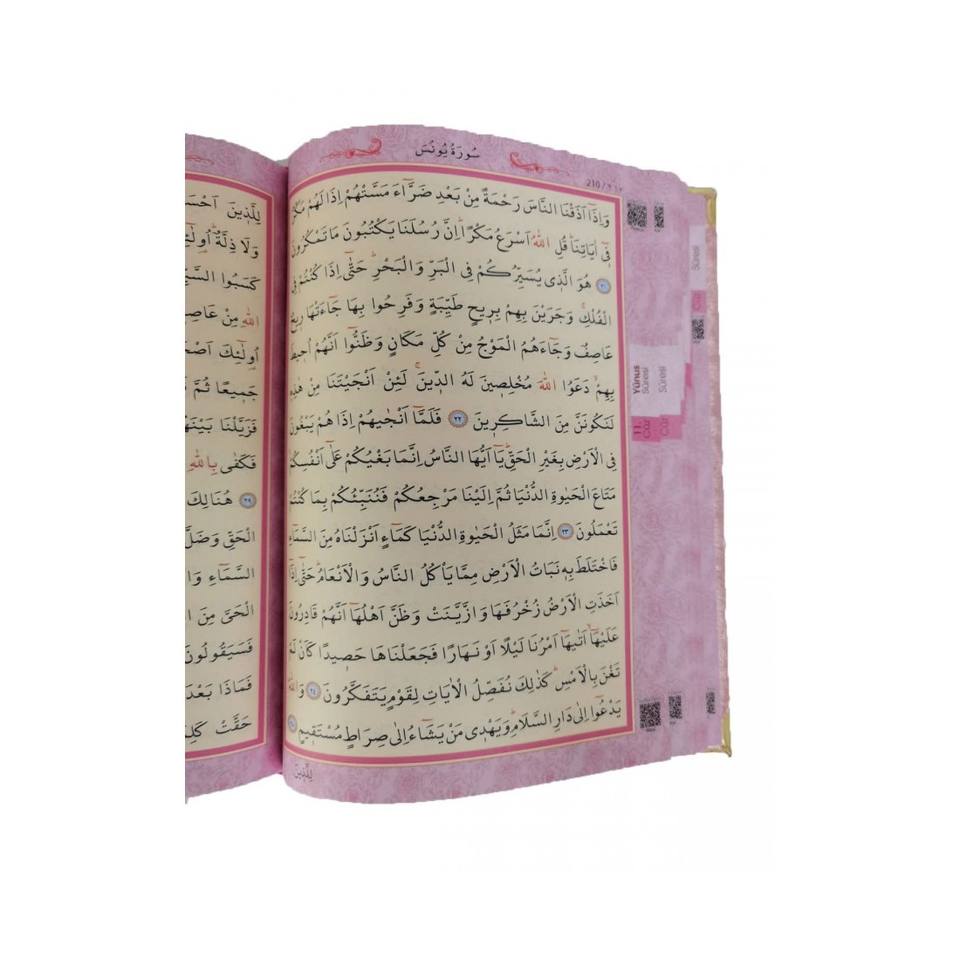 سُورَةُ يُونُسَ
210 / ٢١٠
وَاِذَٓا اَذَقْنَا النَّاسَ رَحْمَةً مِنْ بَعْدِ ضَرَّٓاءَ مَسَّتْهُمْ اِذَا لَهُمْ مَكْرٌ
ف۪ٓي اٰيَاتِنَاۜ قُلِ اللّٰهُ اَسْرَعُ مَكْرًاۜ اِنَّ رُسُلَنَا يَكْتُبُونَ مَا تَمْكُرُونَ
٢١ هُوَ الَّذ۪ي يُسَيِّرُكُمْ فِي الْبَرِّ وَالْبَحْرِۜ حَتّٰٓى اِذَا كُنْتُمْ فِي
الْفُلْكِۚ وَجَرَيْنَ بِهِمْ بِر۪يحٍ طَيِّبَةٍ وَفَرِحُوا بِهَا جَٓاءَتْهَا ر۪يحٌ
عَاصِفٌ وَجَٓاءَهُمُ الْمَوْجُ مِنْ كُلِّ مَكَانٍ وَظَنُّٓوا اَنَّهُمْ اُح۪يطَ
بِهِمْۙ دَعَوُا اللّٰهَ مُخْلِص۪ينَ لَهُ الدّ۪ينَۚ لَئِنْ اَنْجَيْتَنَا مِنْ هٰذِه۪
لَنَكُونَنَّ مِنَ الشَّاكِر۪ينَ ٢٢ فَلَمَّٓا اَنْجٰيهُمْ اِذَا هُمْ يَبْغُونَ
فِي الْاَرْضِ بِغَيْرِ الْحَقِّۜ يَٓا اَيُّهَا النَّاسُ اِنَّمَا بَغْيُكُمْ عَلٰٓى اَنْفُسِكُمْ
مَتَاعَ الْحَيٰوةِ الدُّنْيَا ثُمَّ اِلَيْنَا مَرْجِعُكُمْ فَنُنَبِّئُكُمْ بِمَا كُنْتُمْ
تَعْمَلُونَ ٢٣ اِنَّمَا مَثَلُ الْحَيٰوةِ الدُّنْيَا كَمَٓاءٍ اَنْزَلْنَاهُ مِنَ السَّمَٓاءِ
فَاخْتَلَطَ بِه۪ نَبَاتُ الْاَرْضِ مِمَّا يَأْكُلُ النَّاسُ وَالْاَنْعَامُۜ حَتّٰٓى اِذَٓا
اَخَذَتِ الْاَرْضُ زُخْرُفَهَا وَازَّيَّنَتْ وَظَنَّ اَهْلُهَٓا اَنَّهُمْ قَادِرُونَ
عَلَيْهَٓاۙ اَتٰيهَٓا اَمْرُنَا لَيْلًا اَوْ نَهَارًا فَجَعَلْنَاهَا حَص۪يدًا كَاَنْ لَمْ
تَغْنَ بِالْاَمْسِۜ كَذٰلِكَ نُفَصِّلُ الْاٰيَاتِ لِقَوْمٍ يَتَفَكَّرُونَ ٢٤ وَاللّٰهُ
يَدْعُٓوا اِلٰى دَارِ السَّلَامِۜ وَيَهْد۪ي مَنْ يَشَٓاءُ اِلٰى صِرَاطٍ مُسْتَق۪يمٍ ٢٥
لِلَّذ۪ينَ
Sûresi
Yûnus
Sûresi
Sûresi
11.
Cüz
لِلَّذ۪ينَ
وَلَا ذِلَّةٌۜ
كَسَبُوا
اللّٰهِ مِنْ
اُو۬لٰٓئِكَ
جَم۪يعًا ثُمَّ
فَزَيَّلْنَا
فَكَفٰى بِاللّٰهِ
٢٩ هُنَالِكَ
الْحَقِّ وَضَلَّ
السَّمَٓاءِ
الْحَيَّ مِنَ
فَسَيَقُولُونَ
فَمَاذَا بَعْدَ
حَقَّتْ